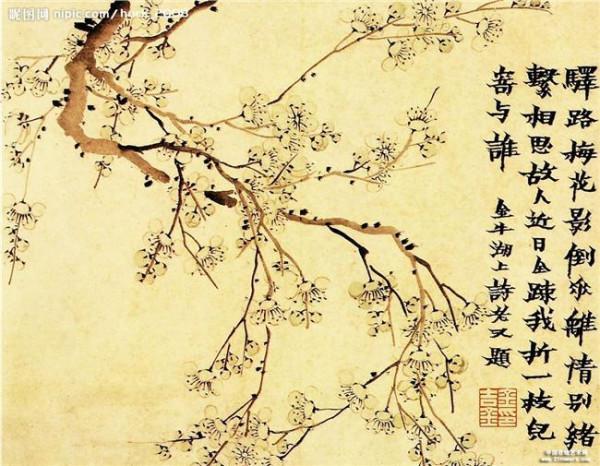 昵图网 nipic.com/
驛路梅花影倒垂離情別緒
繫相思故人近日全踈我折一枝兒
寄与誰
金牛湖上詩老又題